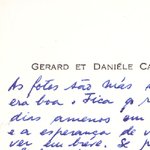 GERARD ET DANIÉLE CA
As fotos são más
era boa. Fica p
dias amenos em
e a esperança de v
ver em breve. Se p